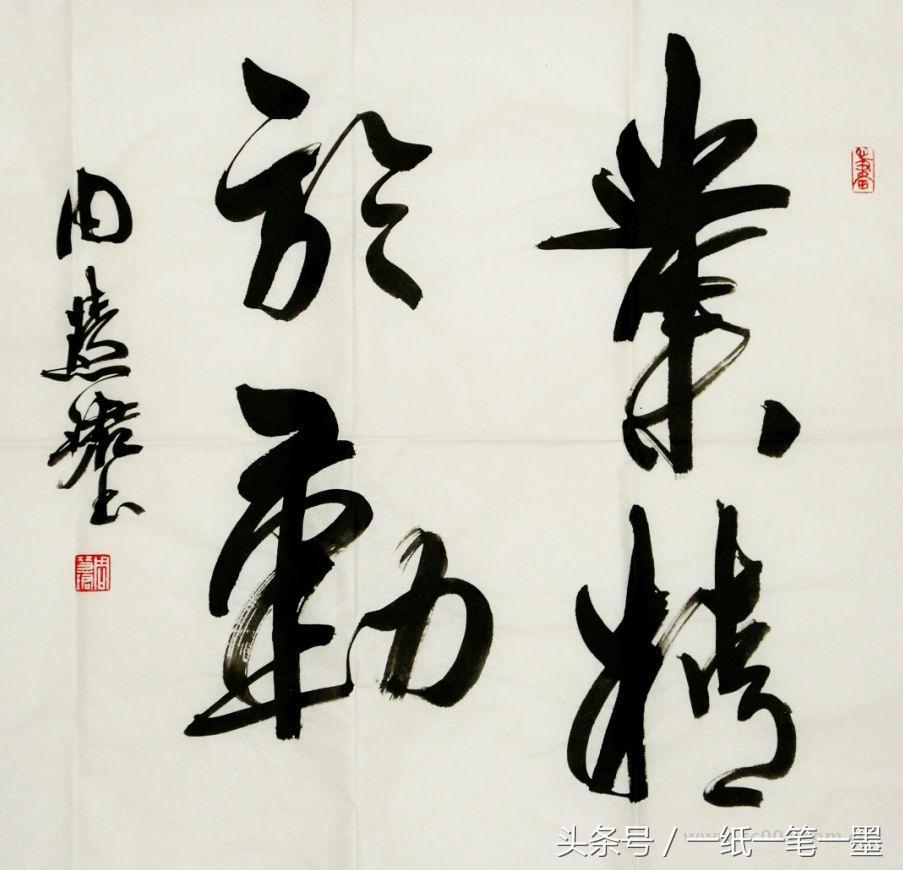 業精
於勤
周慧珺书
头条号 / 一纸一笔一墨